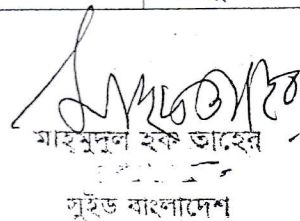 মাহমুদুল হক তাহের
সুইড বাংলাদেশ